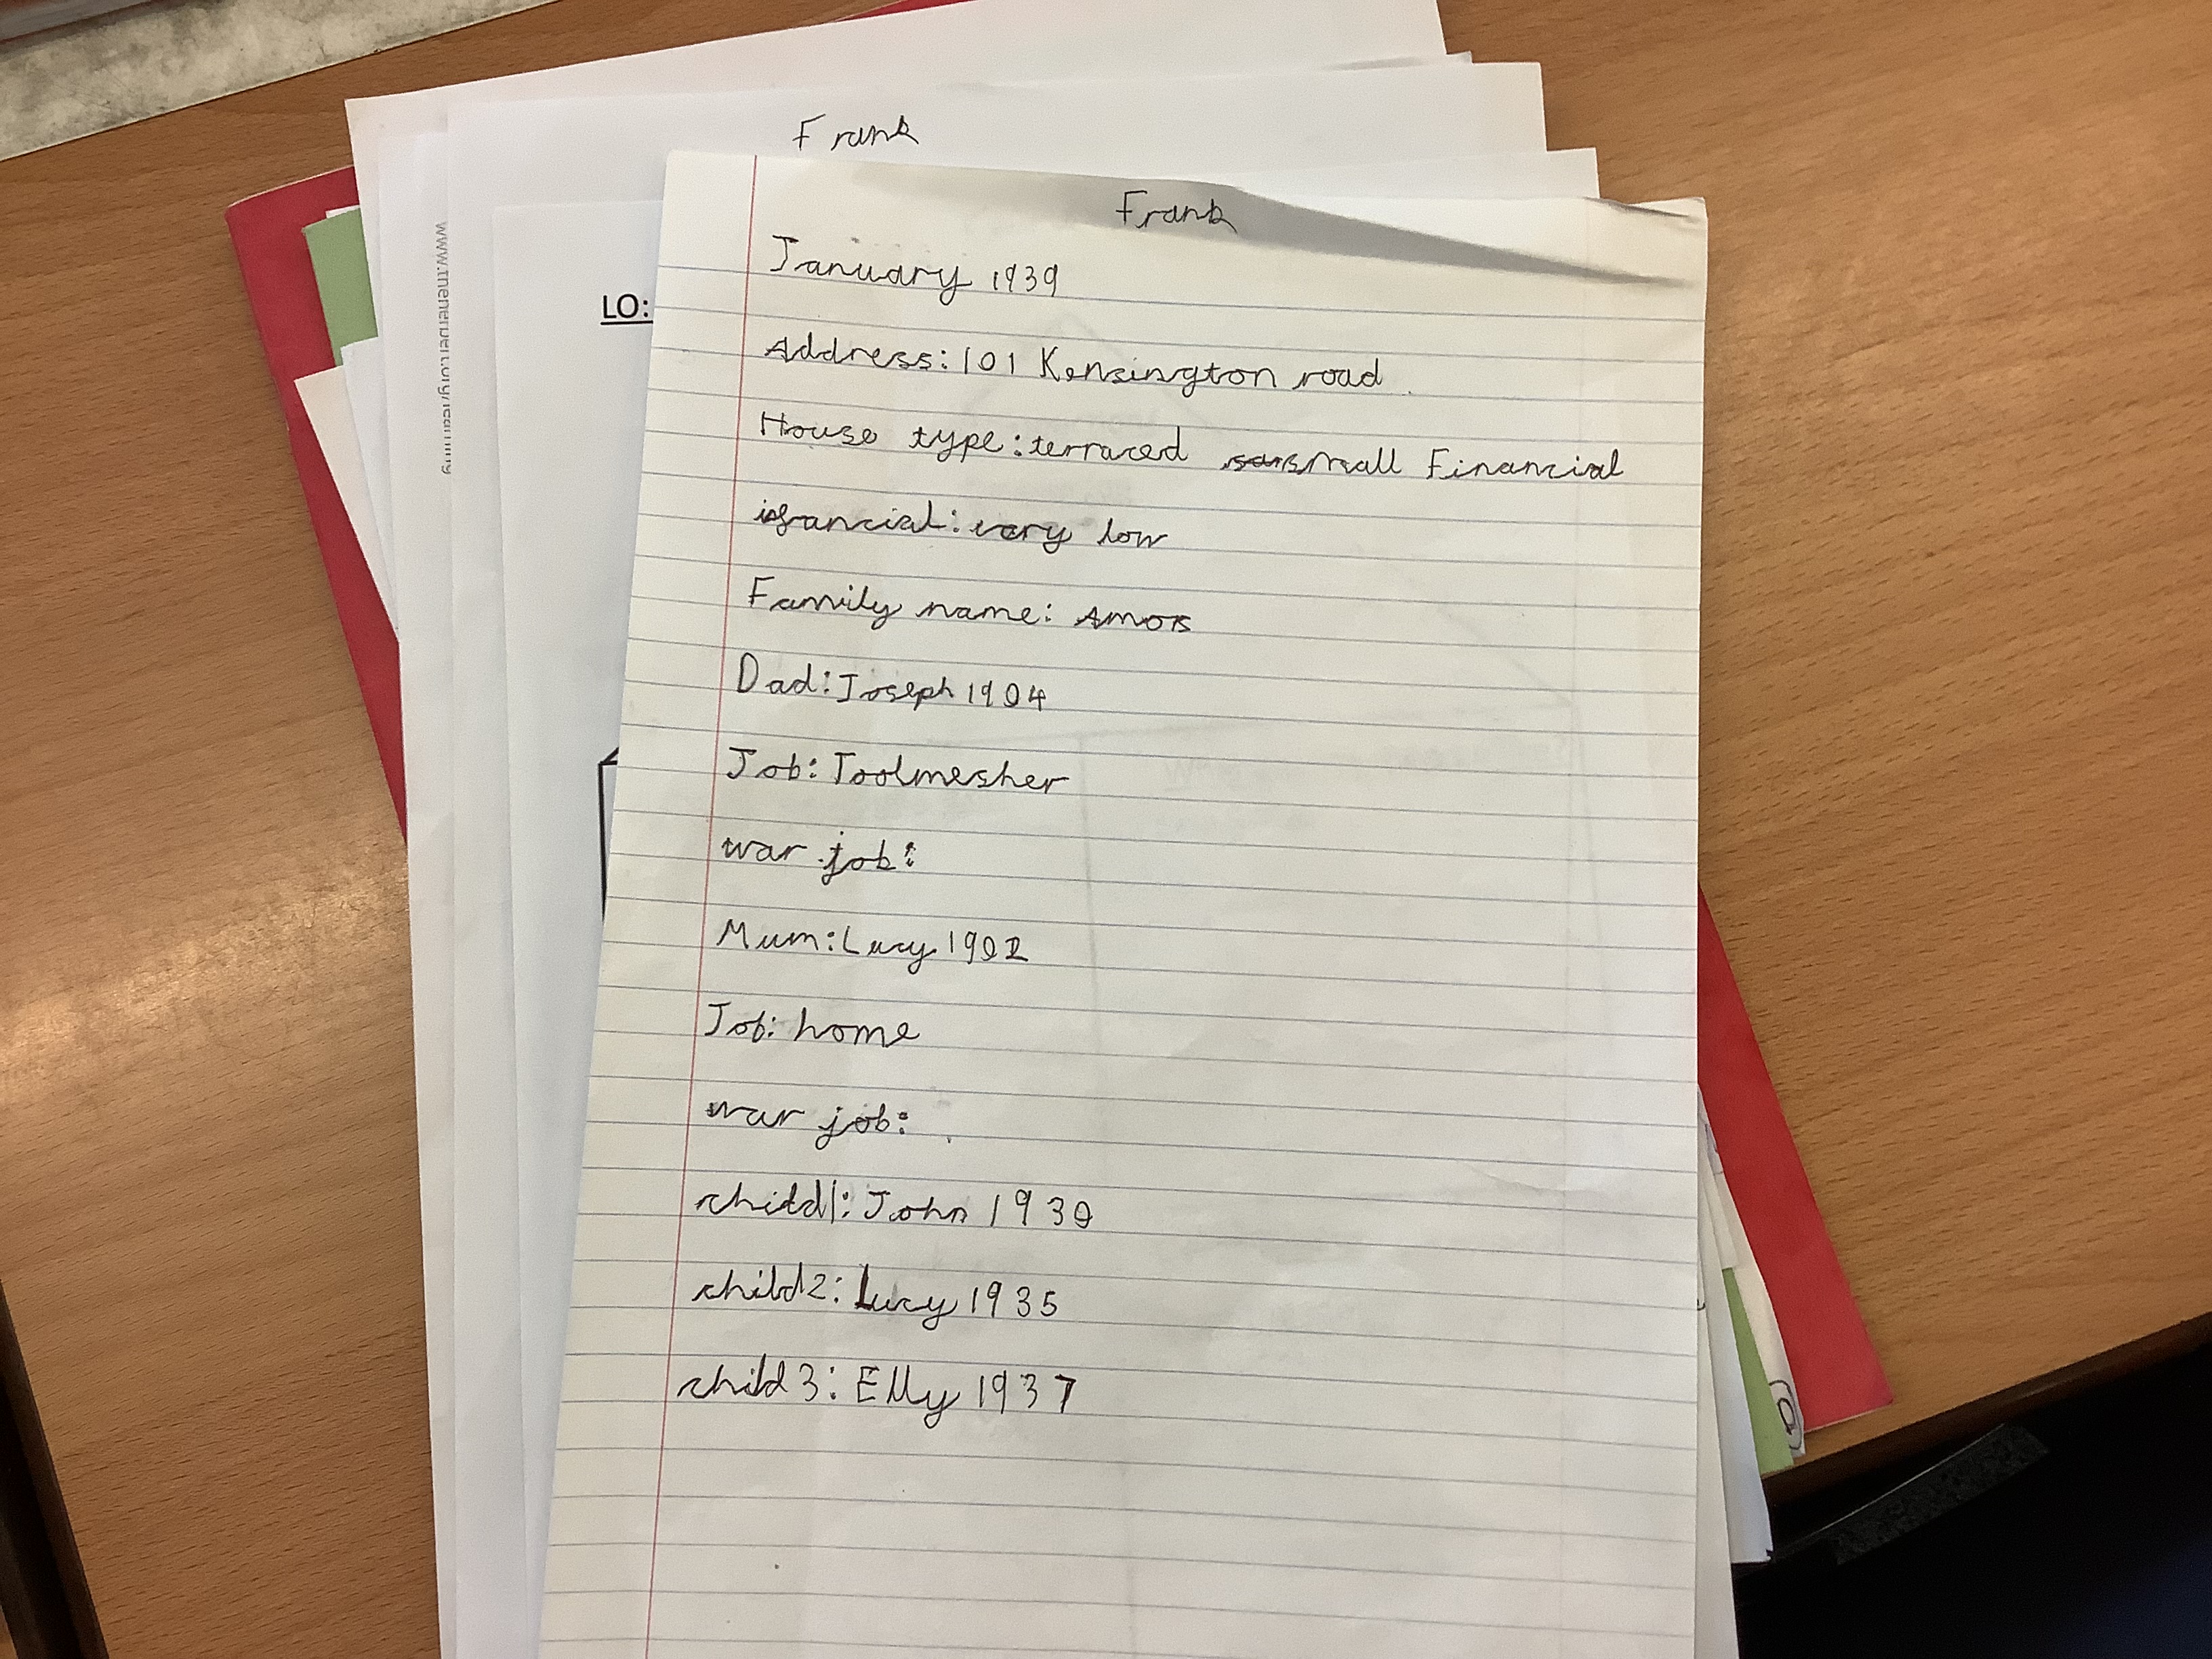 Frank
Frank
LO:
January 1939
Address: 101 Kensington road
House type: terraced small Financial
very low
Family name: Amos
Dad: Joseph 1904
Job: Toolmesher
war job:
Mum: Lucy 1902
Job: home
war job:
child1: John 1930
child2: Lucy 1935
child3: Elly 1937